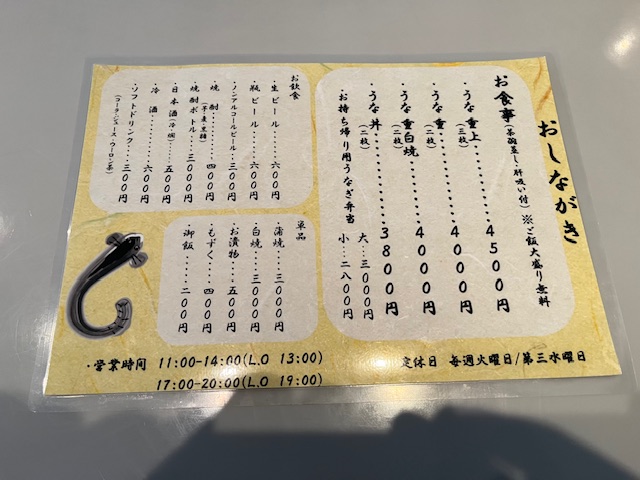 おしながき
お食事(茶碗蒸し・肝吸い付)※ご飯大盛り無料
・うな重上(三枚)・・・・・・・・・4500円
・うな重(二枚)・・・・・・・・・・4000円
・うな重白焼(二枚)・・・・・・・・4000円
・うな丼(二枚)・・・・・・・・・・3800円
・お持ち帰り用うなぎ弁当 大…三000円
小…二八00円
お飲食
・生ビール・・・・・・六00円
・瓶ビール・・・・・・六00円
・ノンアルコールビール・・三00円
・焼酎(芋・麦・黒糖)・・・・・四00円
・焼酎ボトル・・・・三000円
・日本酒(冷・燗)・・・・・五00円
・冷酒・・・・・・・・六00円
・ソフトドリンク・・・三00円
(コーラ・ジュース・ウーロン茶)
単品
・蒲焼・・・・三000円
・白焼・・・・三000円
・お漬物・・・・五00円
・もずく・・・・四00円
・御飯・・・・・二00円
・営業時間 11:00-14:00(L.O 13:00)
17:00-20:00(L.O 19:00)
定休日 毎週火曜日/第三水曜日